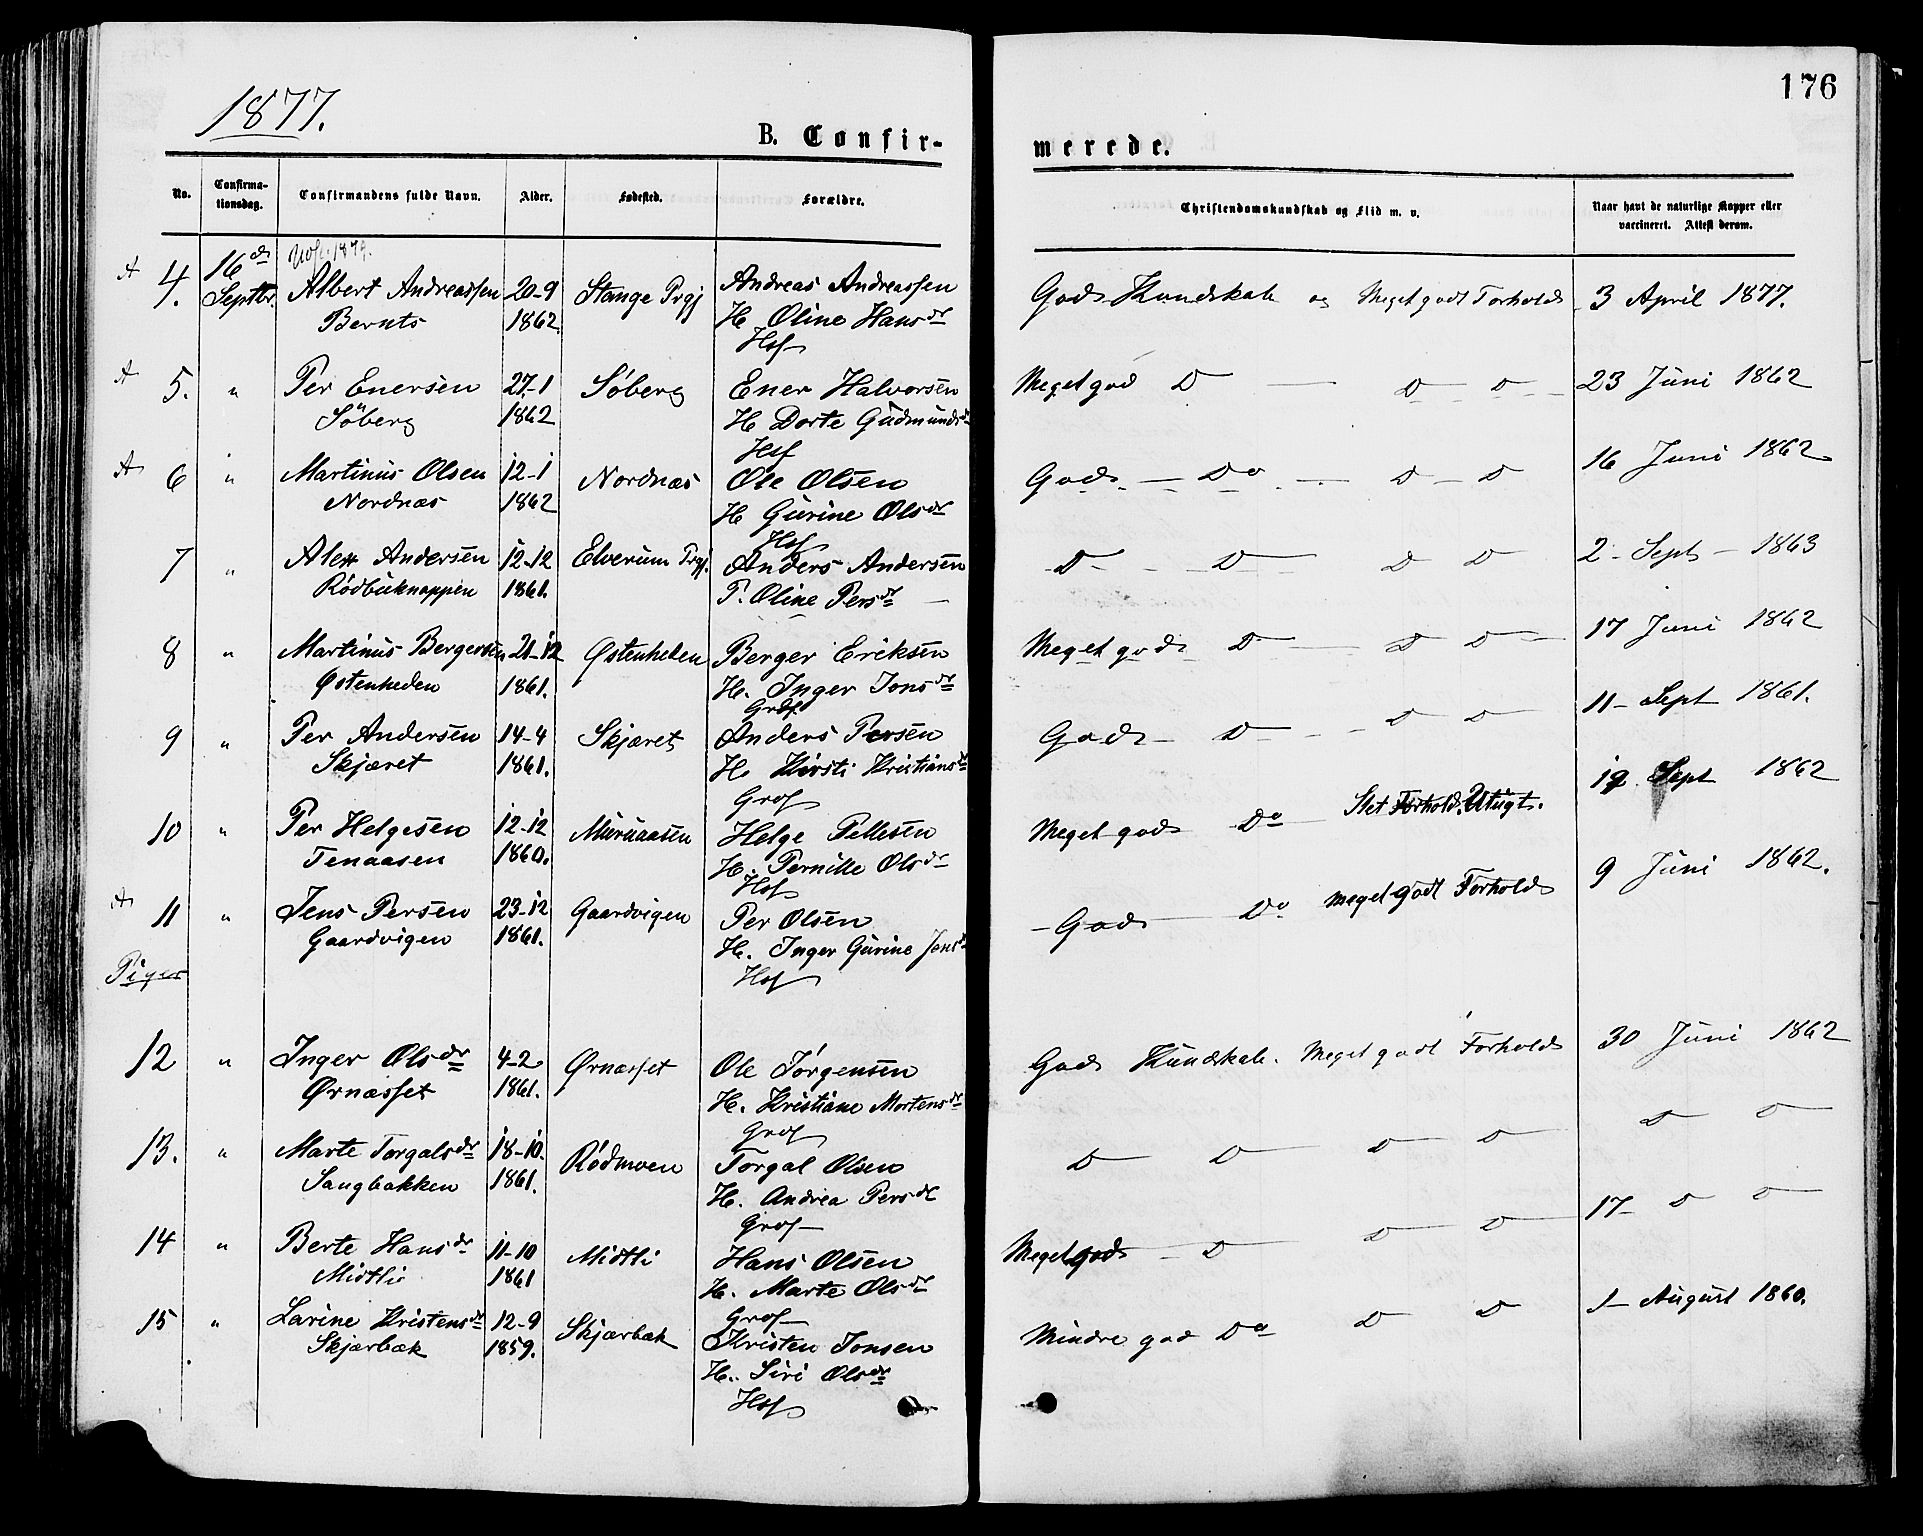 1877.
176
B. Confir-
merede.
No.
Confirma-
tionsdag.
Confirmandens fulde Navn.
Alder.
Fødested.
Forældre.
Christendomskundskab og Flid m. v.
Naar havt de naturlige Kopper eller
vaccineret. Attest derom.
A 4. 16de Albert Andreassen 20-9 Stange Prgj Andreas Andreassen God Kundskab og Meget godt Forhold 3 April 1877.
Septbr. Bernts 1862 H Oline Hansdr
Hsf
A 5. " Per Enersen 27-1 Søberg Ener Halvorsen Meget god D — D — D — 23 Juni 1862
Søberg 1862 H Dorte Gudmundsdr
Hsf
A 6 " Martinus Olsen 12-1 Nordnæs Ole Olsen God — Do — D — D 16 Juni 1862
Nordnæs 1862 H Gurine Olsdr
Hsf
7 " Alex Andersen 12-12 Elverum Prgj. Anders Andersen D — D — D D 2 - Sept - 1863
Rødbuknappen 1861. P. Oline Persdr —
8 " Martinus Bergersen 21-12 Østenheden Berger Eriksen Meget god D — D D — 17 Juni 1862
Østenheden 1861. H. Inger Jonsdr
Grdf
9 " Per Andersen 14-4 Skjæret Anders Persen God — D — D D 11 - Sept 1861.
Skjæret 1861. H. Kirsti Kristiansdr
Grdf
10 " Per Helgesen 12-12 Muruaasen Helge Pellesen Meget god Do Slet Forhold. Utugt. 19 Sept 1862
Tenaasen 1860. H. Pernille Olsdr
Hsf
A 11 " Jens Persen 23-12 Gaardvigen Per Olsen God — Do meget godt Forhold 9 Juni 1862.
Gaardvigen 1861. H. Inger Gurine Jensdr
Hsf
Piger
12 " Inger Olsdr 4-2 Ørnæsset Ole Jørgensen God Kundskab. Meget godt Forhold 30 Juni 1862
Ørnæsset 1861. H. Kristiane Mortensdr
Grdf
13. " Marte Torgalsdr 18-10. Rødmoen Torgal Olsen D D D D D D
Sangbakken 1861. H. Andrea Persdr
Grdf
14 " Berte Hansdr 11-10 Midtli Hans Olsen Meget god — D D D 17 - D D
Midtli 1861 H. Marte Olsdr
Grdf
15 " Larine Kristensdr 12-9 Skjærbæk Kristen Jonsen Mindre god Do D D 1 - August 1860.
Skjærbæk 1859. H. Siri Olsdr
Hsf